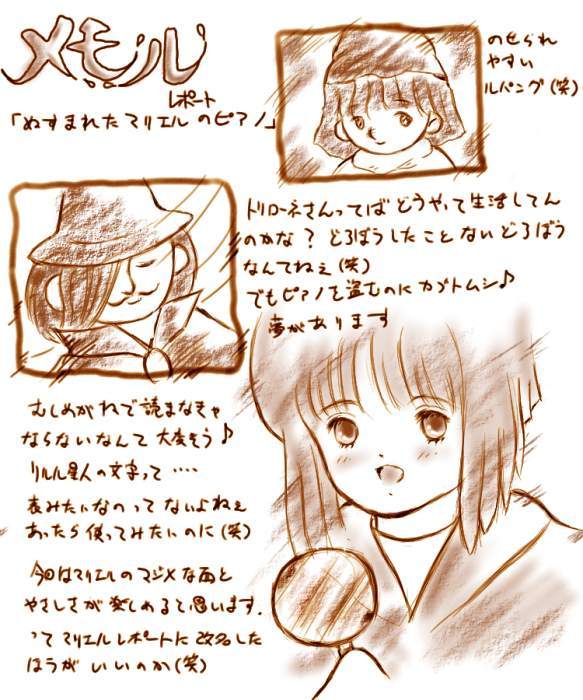 メモル
レポート
「ぬすまれた マリエル のピアノ」
のせられ
やすい
ルパング(笑)
ドリローネさんってば どうやって生活してん
のかな？ どろぼうしたこと ないどろぼう
なんてねぇ(笑)
でもピアノを盗むのに カブトムシ♪
夢があります
むしめがねで読まなきゃ
ならないなんて 大変そう♪
リルル星人の文字って ‥‥
表みたいなのって ないよねぇ
あったら 使ってみたいのに(笑)
今回はマリエルのマジメな面と
やさしさが 楽しめると思います.
って マリエルレポートに 改名した
ほうが いいのか(笑)